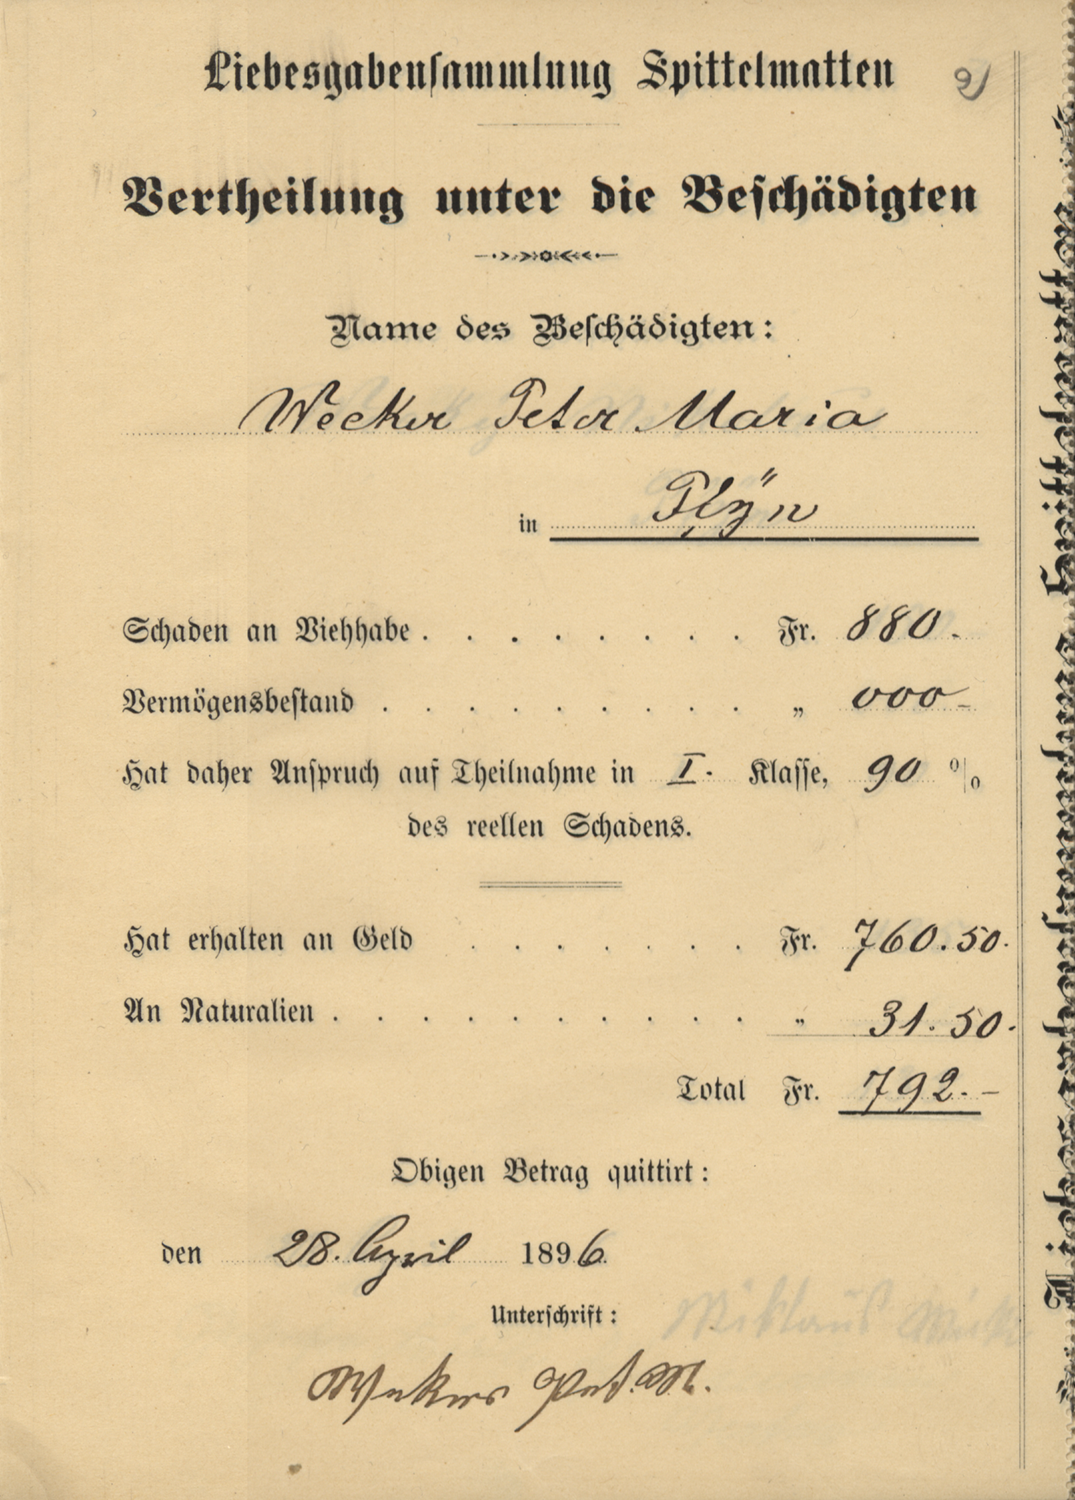 Liebesgabensammlung Spittelmatten
Vertheilung unter die Beschädigten
Name des Beschädigten:
Wecker Peter Maria
in Flÿn
Schaden an Viehhabe . . . . . . . . Fr. 880.
Vermögensbestand . . . . . . . . . „ 000-
Hat daher Anspruch auf Theilnahme in I. Klasse, 90 %
des reellen Schadens.
Hat erhalten an Geld . . . . . . . Fr. 760.50.
An Naturalien . . . . . . . . . . „ 31.50.
Total Fr. 792.-
Obigen Betrag quittirt:
den 28. April 1896.
Unterschrift:
Pet. M.
Liebesgabensammlung Spittelmatten